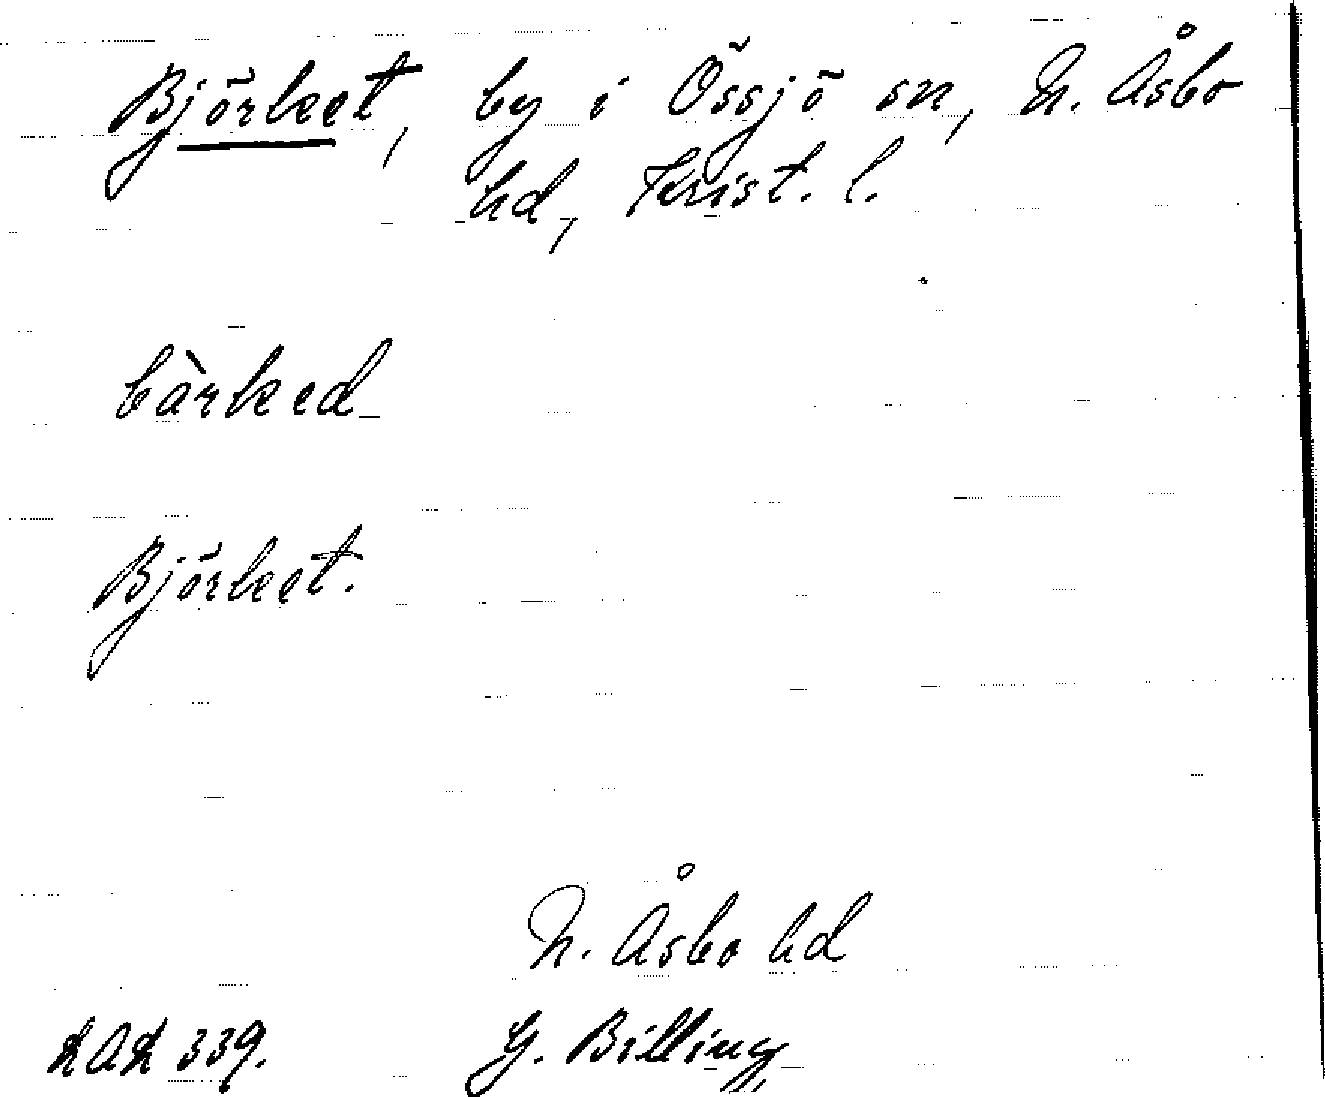 Björket, by i Össjö sn, N. Åsbo
hd, Krist. l.
bàrked
Björket.
N. Åsbo hd
LAL 339.
G. Billing